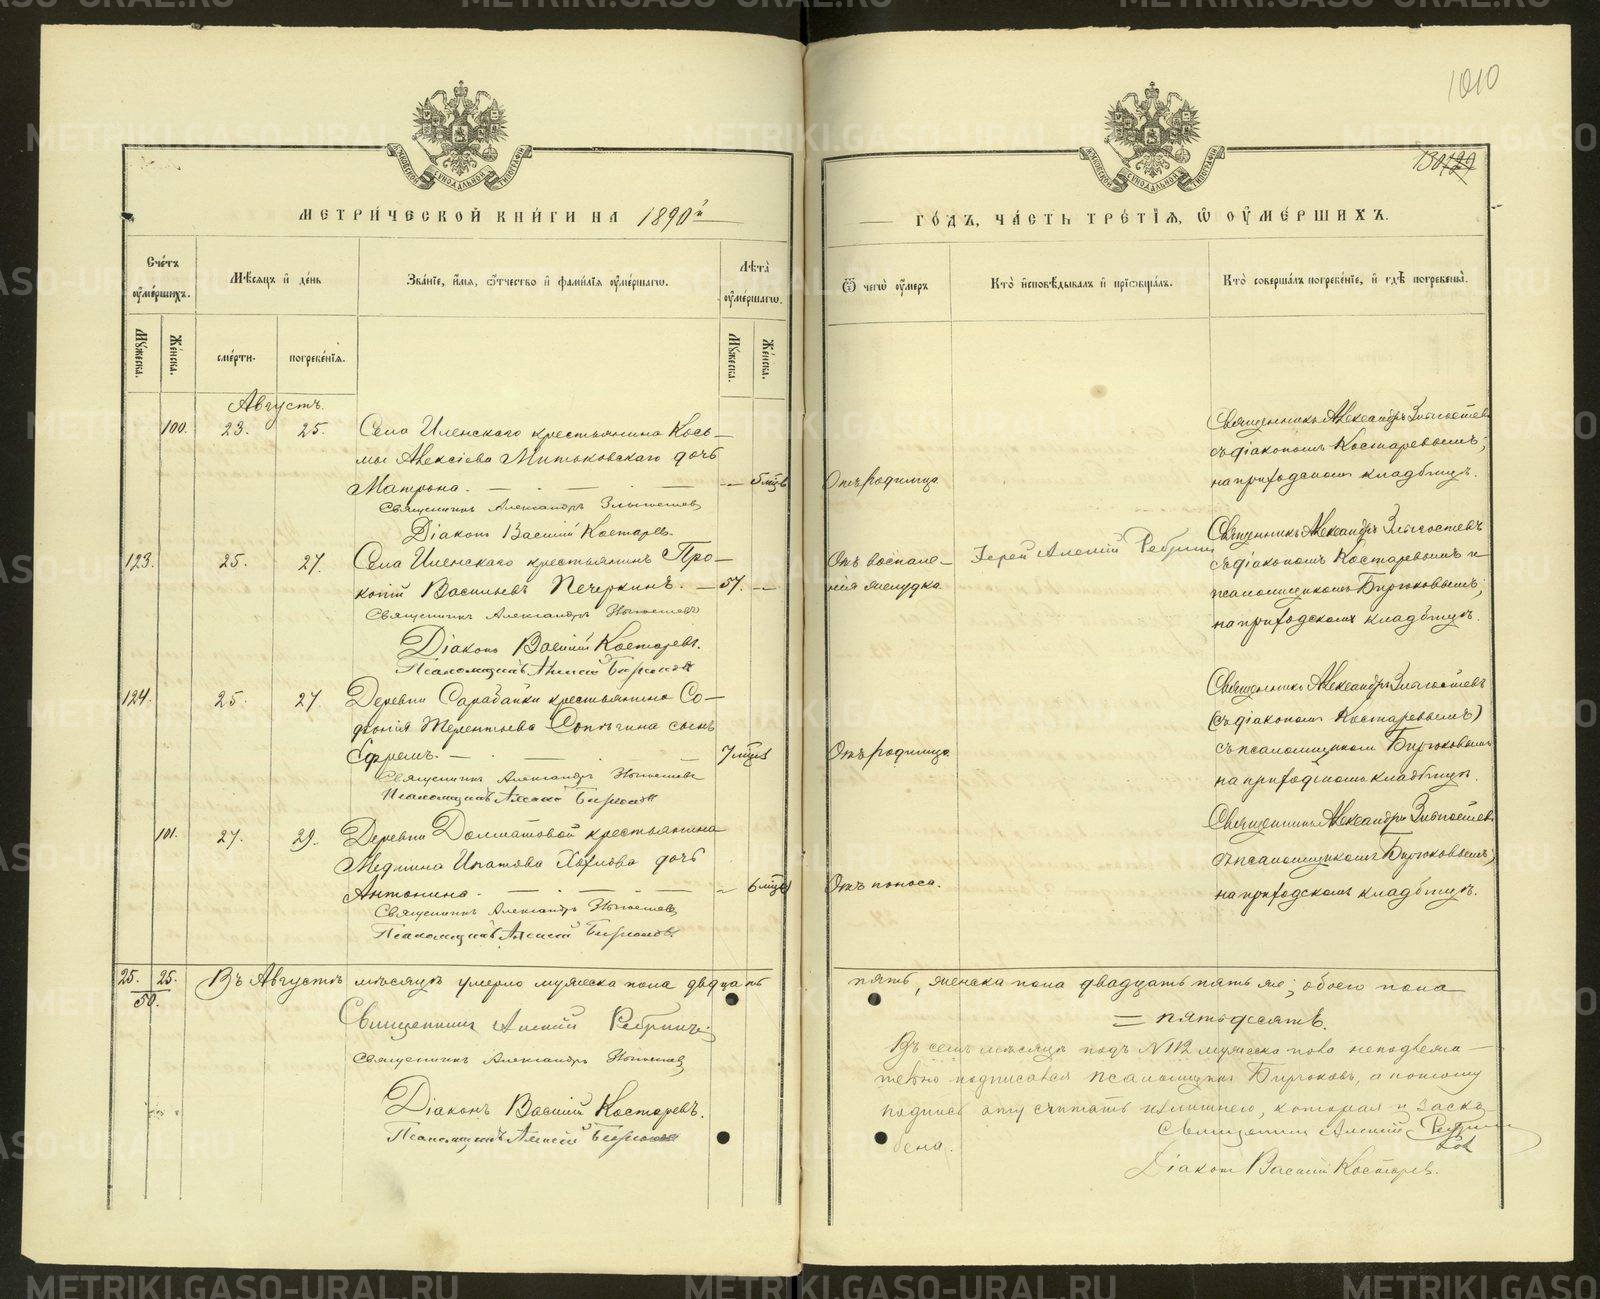 1010
130
МЕТРИЧЕСКОЙ КНИГИ НА 1890й
ГОДЪ, ЧАСТЬ ТРЕТІЯ, Ѿ ОУМЕРШИХЪ.
Счетъ оумершихъ.
Мѣсяцъ и день
Званіе, имя, ѿчество и фамилія оумершагѡ.
Лѣта оумершагѡ.
Ѿ чегѡ оумеръ
Кто исповѣдывалъ и пріѡбщалъ.
Кто совершалъ погребеніе, и гдѣ погребены.
Мужеска.
Женска.
смерти.
погребенія.
Мужеска.
Женска.
Августъ.
100. 23. 25. Села Иленскаго крестьянина Кось-
мы Алексіева Митьковскаго дочь
Матрона. — — 5 мцв
Отъ родимца
Священникъ Александръ
съ діакономъ Костаревымъ;
на приходскомъ кладбищѣ.
Священникъ Александръ
Діаконъ Василій Костаревъ.
123. 25. 27. Села Иленскаго крестьянинъ Про-
копій Васильевъ Печеркинъ. — 57. —
Отъ воспале-
нія желудка.
Іерей Алексій Ребринъ
Священникъ Александръ
съ діакономъ Костаревымъ и
псаломщикомъ Бирюковымъ;
на приходскомъ кладбищѣ.
Священникъ Александръ
Діаконъ Василій Костаревъ.
Псаломщикъ Алексій Бирюковъ
124. 25. 27. Деревни Сарабайки крестьянина Со-
фронія Терентьева сынъ
Ефремъ. — 7 мцв
Отъ родимца.
Священникъ Александръ
(съ діакономъ Костаревымъ)
съ псаломщикомъ Бирюковымъ
на приходскомъ кладбищѣ.
Священникъ Александръ
Псаломщикъ Алексій Бирюковъ
101. 27. 29. Деревни Долматовой крестьянина
Ипатова дочь
Антонина. — — 6 мцв
Отъ поноса.
Священникъ Александръ
съ псаломщикомъ Бирюковымъ;
на приходскомъ кладбищѣ.
Священникъ Александръ
Псаломщикъ Алексій Бирюковъ
25. 25.
50.
Въ Августѣ мѣсяцѣ умерло мужеска пола двадцать
пять, женска пола двадцать пять же; обоего пола
= пятьдесятъ.
Священникъ Алексій Ребринъ.
Священникъ Александръ
Діаконъ Василій Костаревъ.
Псаломщикъ Алексій Бирюковъ
Въ семъ мѣсяцѣ подъ №112 мужеска пола неподлежа-
тельно подписался псаломщикъ Бирюковъ, а потому
подпись эту считать излишнею, которая и заско
бена.
Священникъ Алексій Ребринъ
Діаконъ Василій Костаревъ.
METRIKI.GASO-URAL.RU